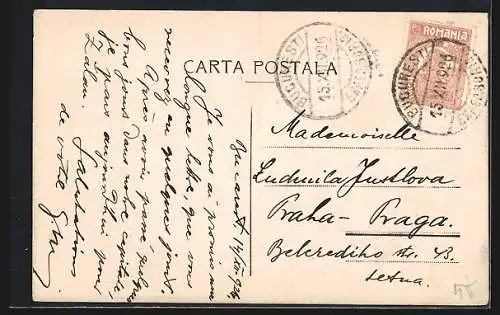 CARTA POSTALA
ROMANIA
BUCURESTI
15.XII.926
BUCURESTI
15.XII.926
Bucarest, 14/XII 1926
Je vous ai promis une
longue lettre, que vous
recevrez en quelques jours.
Après avoir passé quelques
bons jours dans notre capitale,
je pars aujourd'hui pour
Zalau.
Salutations
de votre
Mademoiselle
Ludmila Justlova
Praha - Praga.
Belcrediho tř. 43.
Letna.